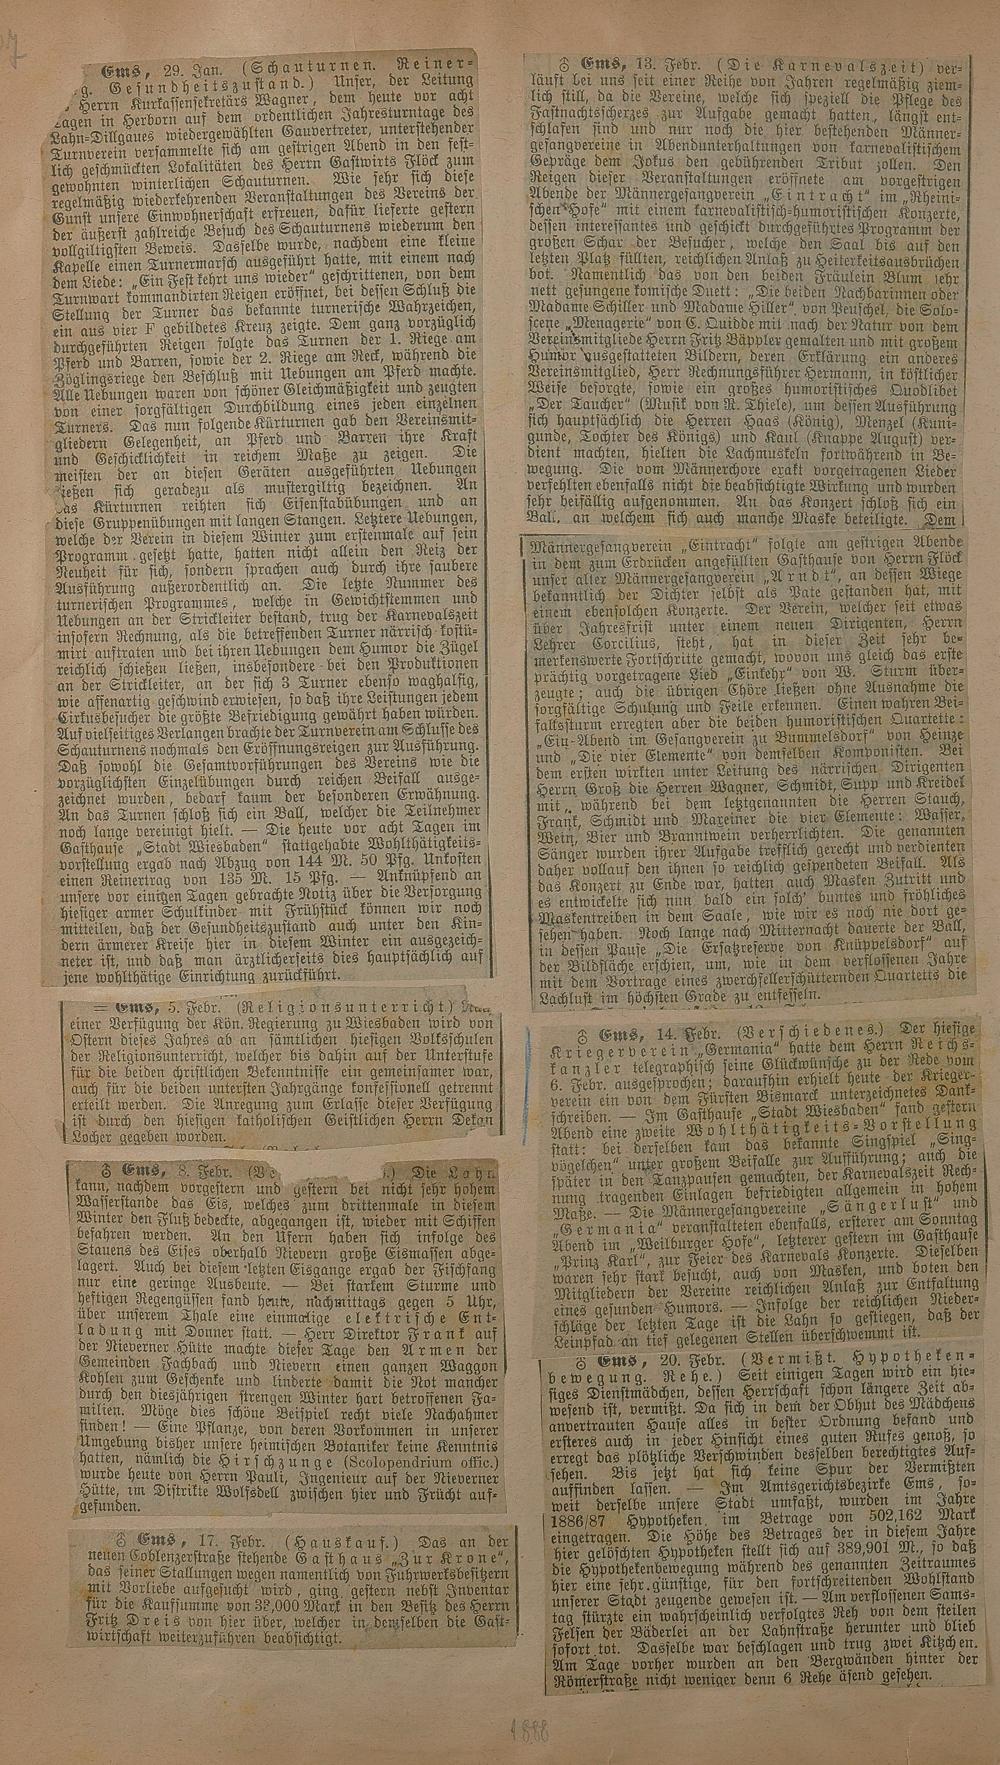 Ems, 29. Jan. (Schauturnen. Reiner-
g. Gesundheitszustand.) Unser, der Leitung
Herrn Kurkassensekretärs Wagner, dem heute vor acht
Tagen in Herborn auf dem ordentlichen Jahresturntage des
Lahn-Dillgaues wiedergewählten Gauvertreter, unterstehender
Turnverein versammelte sich am gestrigen Abend in den fest-
lich geschmückten Lokalitäten des Herrn Gastwirts Flöck zum
gewohnten winterlichen Schauturnen. Wie sehr sich diese
regelmäßig wiederkehrenden Veranstaltungen des Vereins der
Gunst unsere Einwohnerschaft erfreuen, dafür lieferte gestern
der äußerst zahlreiche Besuch des Schauturnens wiederum den
vollgiltigsten Beweis. Dasselbe wurde, nachdem eine kleine
Kapelle einen Turnermarsch ausgeführt hatte, mit einem nach
dem Liede: „Ein Fest kehrt uns wieder“ geschrittenen, von dem
Turnwart kommandirten Reigen eröffnet, bei dessen Schluß die
Stellung der Turner das bekannte turnerische Wahrzeichen,
ein aus vier F gebildetes Kreuz zeigte. Dem ganz vorzüglich
durchgeführten Reigen folgte das Turnen der 1. Riege am
Pferd und Barren, sowie der 2. Riege am Reck, während die
Zöglingsriege den Beschluß mit Uebungen am Pferd machte.
Alle Uebungen waren von schöner Gleichmäßigkeit und zeugten
von einer sorgfältigen Durchbildung eines jeden einzelnen
Turners. Das nun folgende Kürturnen gab den Vereinsmit-
gliedern Gelegenheit, an Pferd und Barren ihre Kraft
und Geschicklichkeit in reichem Maße zu zeigen. Die
meisten der an diesen Geräten ausgeführten Uebungen
ließen sich geradezu als mustergiltig bezeichnen. An
das Kürturnen reihten sich Eisenstabübungen und an
diese Gruppenübungen mit langen Stangen. Letztere Uebungen,
welche der Verein in diesem Winter zum erstenmale auf sein
Programm gesetzt hatte, hatten nicht allein den Reiz der
Neuheit für sich, sondern sprachen auch durch ihre saubere
Ausführung außerordentlich an. Die letzte Nummer des
turnerischen Programmes, welche in Gewichtstemmen und
Uebungen an der Strickleiter bestand, trug der Karnevalszeit
insofern Rechnung, als die betreffenden Turner närrisch kostü-
mirt auftraten und bei ihren Uebungen dem Humor die Zügel
reichlich schießen ließen, insbesondere bei den Produktionen
an der Strickleiter, an der sich 3 Turner ebenso waghalsig,
wie affenartig geschwind erwiesen, so daß ihre Leistungen jedem
Cirkusbesucher die größte Befriedigung gewährt haben würden.
Auf vielseitiges Verlangen brachte der Turnverein am Schlusse des
Schauturnens nochmals den Eröffnungsreigen zur Ausführung.
Daß sowohl die Gesamtvorführungen des Vereins wie die
vorzüglichsten Einzelübungen durch reichen Beifall ausge-
zeichnet wurden, bedarf kaum der besonderen Erwähnung.
An das Turnen schloß sich ein Ball, welcher die Teilnehmer
noch lange vereinigt hielt. — Die heute vor acht Tagen im
Gasthause „Stadt Wiesbaden“ stattgehabte Wohlthätigkeits-
vorstellung ergab nach Abzug von 144 M. 50 Pfg. Unkosten
einen Reinertrag von 135 M. 15 Pfg. — Anknüpfend an
unsere vor einigen Tagen gebrachte Notiz über die Versorgung
hiesiger armer Schulkinder mit Frühstück können wir noch
mitteilen, daß der Gesundheitszustand auch unter den Kin-
dern ärmerer Kreise hier in diesem Winter ein ausgezeich-
neter ist, und daß man ärztlicherseits dies hauptsächlich auf
jene wohlthätige Einrichtung zurückführt.
= Ems, 5. Febr. (Religionsunterricht.)
einer Verfügung der Kön. Regierung zu Wiesbaden wird von
Ostern dieses Jahres ab an sämtlichen hiesigen Volksschulen
der Religionsunterricht, welcher bis dahin auf der Unterstufe
für die beiden christlichen Bekenntnisse ein gemeinsamer war,
auch für die beiden untersten Jahrgänge konfessionell getrennt
erteilt werden. Die Anregung zum Erlasse dieser Verfügung
ist durch den hiesigen katholischen Geistlichen Herrn Dekan
Locher gegeben worden.
♁ Ems, 8. Febr. (Ve .) Die Lahn
kann, nachdem vorgestern und gestern bei nicht sehr hohem
Wasserstande das Eis, welches zum drittenmale in diesem
Winter den Fluß bedeckte, abgegangen ist, wieder mit Schiffen
befahren werden. An den Ufern haben sich infolge des
Stauens des Eises oberhalb Nievern große Eismassen abge-
lagert. Auch bei diesem letzten Eisgange ergab der Fischfang
nur eine geringe Ausbeute. — Bei starkem Sturme und
heftigen Regengüssen fand heute, nachmittags gegen 5 Uhr,
über unserem Thale eine einmalige elektrische Ent-
ladung mit Donner statt. — Herr Direktor Frank auf
der Nieverner Hütte machte dieser Tage den Armen der
Gemeinden Fachbach und Nievern einen ganzen Waggon
Kohlen zum Geschenke und linderte damit die Not mancher
durch den diesjährigen strengen Winter hart betroffenen Fa-
milien. Möge dies schöne Beispiel recht viele Nachahmer
finden! — Eine Pflanze, von deren Vorkommen in unserer
Umgebung bisher unsere heimischen Botaniker keine Kenntnis
hatten, nämlich die Hirschzunge (Scolopendrium offic.)
wurde heute von Herrn Pauli, Ingenieur auf der Nieverner
Hütte, im Distrikte Wolfsdell zwischen hier und Frücht auf-
gefunden.
♁ Ems, 17. Febr. (Hauskauf.) Das an der
neuen Coblenzerstraße stehende Gasthaus „Zur Krone“,
das seiner Stallungen wegen namentlich von Fuhrwerksbesitzern
mit Vorliebe aufgesucht wird, ging gestern nebst Inventar
für die Kaufsumme von 38,000 Mark in den Besitz des Herrn
Fritz Dreis von hier über, welcher in demselben die Gast-
wirtschaft weiterzuführen beabsichtigt.
♁ Ems, 13. Febr. (Die Karnevalszeit) ver-
läuft bei uns seit einer Reihe von Jahren regelmäßig ziem-
lich still, da die Vereine, welche sich speziell die Pflege des
Fastnachtsscherzes zur Aufgabe gemacht hatten, längst ent-
schlafen sind und nur noch die hier bestehenden Männer-
gesangvereine in Abendunterhaltungen von karnevalistischem
Gepräge dem Jokus den gebührenden Tribut zollen. Den
Reigen dieser Veranstaltungen eröffnete am vorgestrigen
Abende der Männergesangverein „Eintracht“ im „Rheini-
schen Hofe“ mit einem karnevalistisch-humoristischen Konzerte,
dessen interessantes und geschickt durchgeführtes Programm der
großen Schar der Besucher, welche den Saal bis auf den
letzten Platz füllten, reichlichen Anlaß zu Heiterkeitsausbrüchen
bot. Namentlich das von den beiden Fräulein Blum sehr
nett gesungene komische Duett: „Die beiden Nachbarinnen oder
Madame Schiller und Madame Hiller“ von Peuschel, die Solo-
scene „Menagerie“ von C. Quidde mit nach der Natur von dem
Vereinsmitgliede Herrn Fritz Bäppler gemalten und mit großem
Humor ausgestatteten Bildern, deren Erklärung ein anderes
Vereinsmitglied, Herr Rechnungsführer Hermann, in köstlicher
Weise besorgte, sowie ein großes humoristisches Quodlibet
„Der Taucher“ (Musik von R. Thiele), um dessen Ausführung
sich hauptsächlich die Herren Haas (König), Menzel (Kuni-
gunde, Tochter des Königs) und Kaul (Knappe August) ver-
dient machten, hielten die Lachmuskeln fortwährend in Be-
wegung. Die vom Männerchore exakt vorgetragenen Lieder
verfehlten ebenfalls nicht die beabsichtigte Wirkung und wurden
sehr beifällig aufgenommen. An das Konzert schloß sich ein
Ball, an welchem sich auch manche Maske beteiligte. Dem
Männergesangverein „Eintracht“ folgte am gestrigen Abende
in dem zum Erdrücken angefüllten Gasthause von Herrn Flöck
unser alter Männergesangverein „Arndt“, an dessen Wiege
bekanntlich der Dichter selbst als Pate gestanden hat, mit
einem ebensolchen Konzerte. Der Verein, welcher seit etwas
über Jahresfrist unter einem neuen Dirigenten, Herrn
Lehrer Corcilius, steht, hat in dieser Zeit sehr be-
merkenswerte Fortschritte gemacht, wovon uns gleich das erste
prächtig vorgetragene Lied „Einkehr“ von W. Sturm über-
zeugte; auch die übrigen Chöre ließen ohne Ausnahme die
sorgfältige Schulung und Feile erkennen. Einen wahren Bei-
fallssturm erregten aber die beiden humoristischen Quartette:
„Ein Abend im Gesangverein zu Bummelsdorf“ von Heinze
und „Die vier Elemente“ von demselben Komponisten. Bei
dem ersten wirkten unter Leitung des närrischen Dirigenten
Herrn Groß die Herren Wagner, Schmidt, Supp und Kreidel
mit, während bei dem letztgenannten die Herren Stauch,
Frank, Schmidt und Maxeiner die vier Elemente: Wasser,
Wein, Bier und Branntwein verherrlichten. Die genannten
Sänger wurden ihrer Aufgabe trefflich gerecht und verdienten
daher vollauf den ihnen so reichlich gespendeten Beifall. Als
das Konzert zu Ende war, hatten auch Masken Zutritt und
es entwickelte sich nun bald ein solch' buntes und fröhliches
Maskentreiben in dem Saale, wie wir es noch nie dort ge-
sehen haben. Noch lange nach Mitternacht dauerte der Ball,
in dessen Pause „Die Ersatzreserve von Knüppelsdorf“ auf
der Bildfläche erschien, um, wie in dem verflossenen Jahre
mit dem Vortrage eines zwerchfellerschütternden Quartetts die
Lachlust im höchsten Grade zu entfesseln.
♁ Ems, 14. Febr. (Verschiedenes.) Der hiesige
Kriegerverein „Germania“ hatte dem Herrn Reichs-
kanzler telegraphisch seine Glückwünsche zu der Rede vom
6. Febr. ausgesprochen; daraufhin erhielt heute der Krieger-
verein ein von dem Fürsten Bismarck unterzeichnetes Dank-
schreiben. — Im Gasthause „Stadt Wiesbaden“ fand gestern
Abend eine zweite Wohlthätigkeits-Vorstellung
statt: bei derselben kam das bekannte Singspiel „Sing-
vögelchen“ unter großem Beifalle zur Aufführung; auch die
später in den Tanzpausen gemachten, der Karnevalszeit Rech-
nung tragenden Einlagen befriedigten allgemein in hohem
Maße. — Die Männergesangvereine „Sängerlust“ und
„Germania“ veranstalteten ebenfalls, ersterer am Sonntag
Abend im „Weilburger Hofe“, letzterer gestern im Gasthause
„Prinz Karl“, zur Feier des Karnevals Konzerte. Dieselben
waren sehr stark besucht, auch von Masken, und boten den
Mitgliedern der Vereine reichlichen Anlaß zur Entfaltung
eines gesunden Humors. — Infolge der reichlichen Nieder-
schläge der letzten Tage ist die Lahn so gestiegen, daß der
Leinpfad an tief gelegenen Stellen überschwemmt ist.
♁ Ems, 20. Febr. (Vermißt. Hypotheken-
bewegung. Rehe.) Seit einigen Tagen wird ein hie-
siges Dienstmädchen, dessen Herrschaft schon längere Zeit ab-
wesend ist, vermißt. Da sich in dem der Obhut des Mädchens
anvertrauten Hause alles in bester Ordnung befand und
ersteres auch in jeder Hinsicht eines guten Rufes genoß, so
erregt das plötzliche Verschwinden desselben berechtigtes Auf-
sehen. Bis jetzt hat sich keine Spur der Vermißten
auffinden lassen. — Im Amtsgerichtsbezirke Ems, so-
weit derselbe unsere Stadt umfaßt, wurden im Jahre
1886/87 Hypotheken im Betrage von 502,162 Mark
eingetragen. Die Höhe des Betrages der in diesem Jahre
hier gelöschten Hypotheken stellt sich auf 389,901 M., so daß
die Hypothekenbewegung während des genannten Zeitraumes
hier eine sehr günstige, für den fortschreitenden Wohlstand
unserer Stadt zeugende gewesen ist. — Am verflossenen Sams-
tag stürzte ein wahrscheinlich verfolgtes Reh von dem steilen
Felsen der Bäderlei an der Lahnstraße herunter und blieb
sofort tot. Dasselbe war beschlagen und trug zwei Kitzchen.
Am Tage vorher wurden an den Bergwänden hinter der
Römerstraße nicht weniger denn 6 Rehe äsend gesehen.
1888